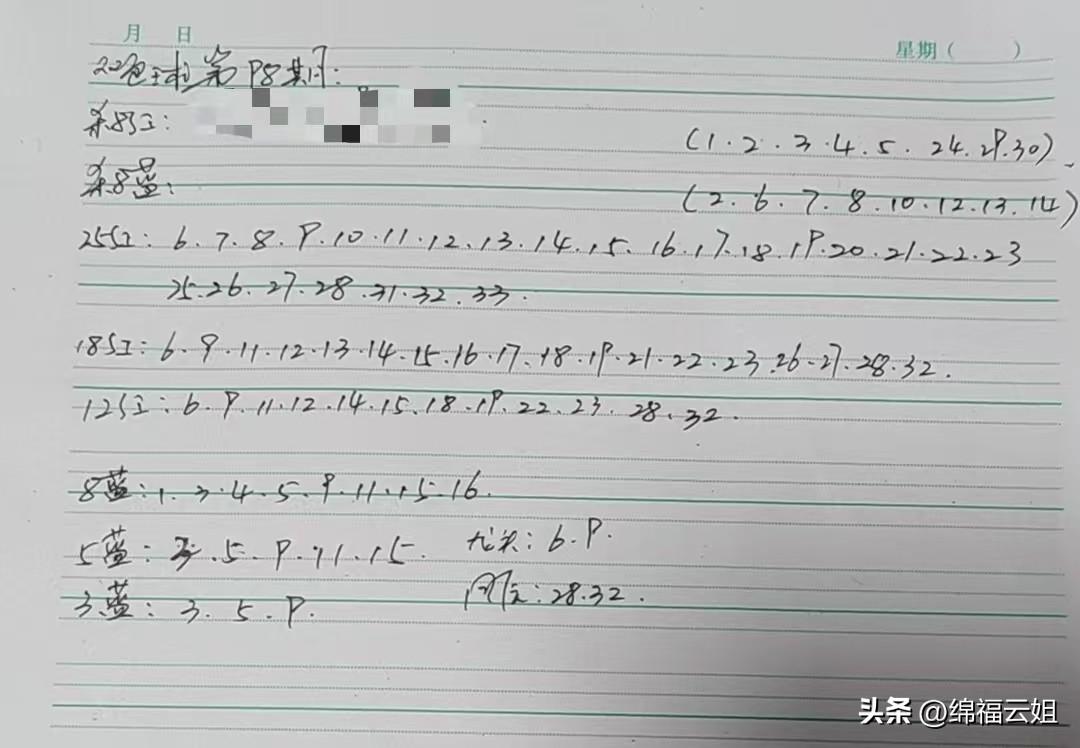 月 日 星期( )
双色球第98期:
杀8红: (1.2.3.4.5.24.29.30)
杀8蓝: (2.6.7.8.10.12.13.14)
25红: 6.7.8.9.10.11.12.13.14.15.16.17.18.19.20.21.22.23
25.26.27.28.31.32.33.
18红: 6.9.11.12.13.14.15.16.17.18.19.21.22.23.26.27.28.32.
12红: 6.9.11.12.14.15.18.19.22.23.28.32.
8蓝: 1.3.4.5.9.11.15.16.
5蓝: 3.5.9.11.15. 龙头: 6.9.
3蓝: 3.5.9. 凤尾: 28.32.
头条 @绵福云姐